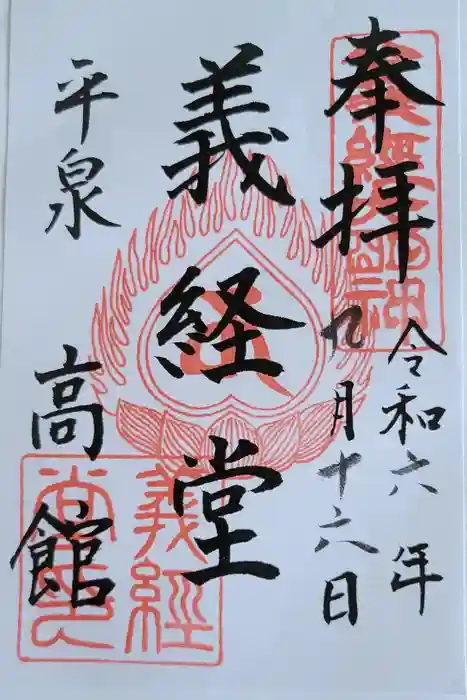 奉拝
令和六年
九月十六日
義経堂
平泉
高館
義經
堂印